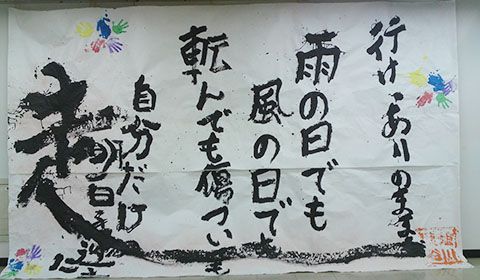 行け ありのまま
雨の日でも
風の日でも
転んでも傷ついても
自分だけ
明日を
走